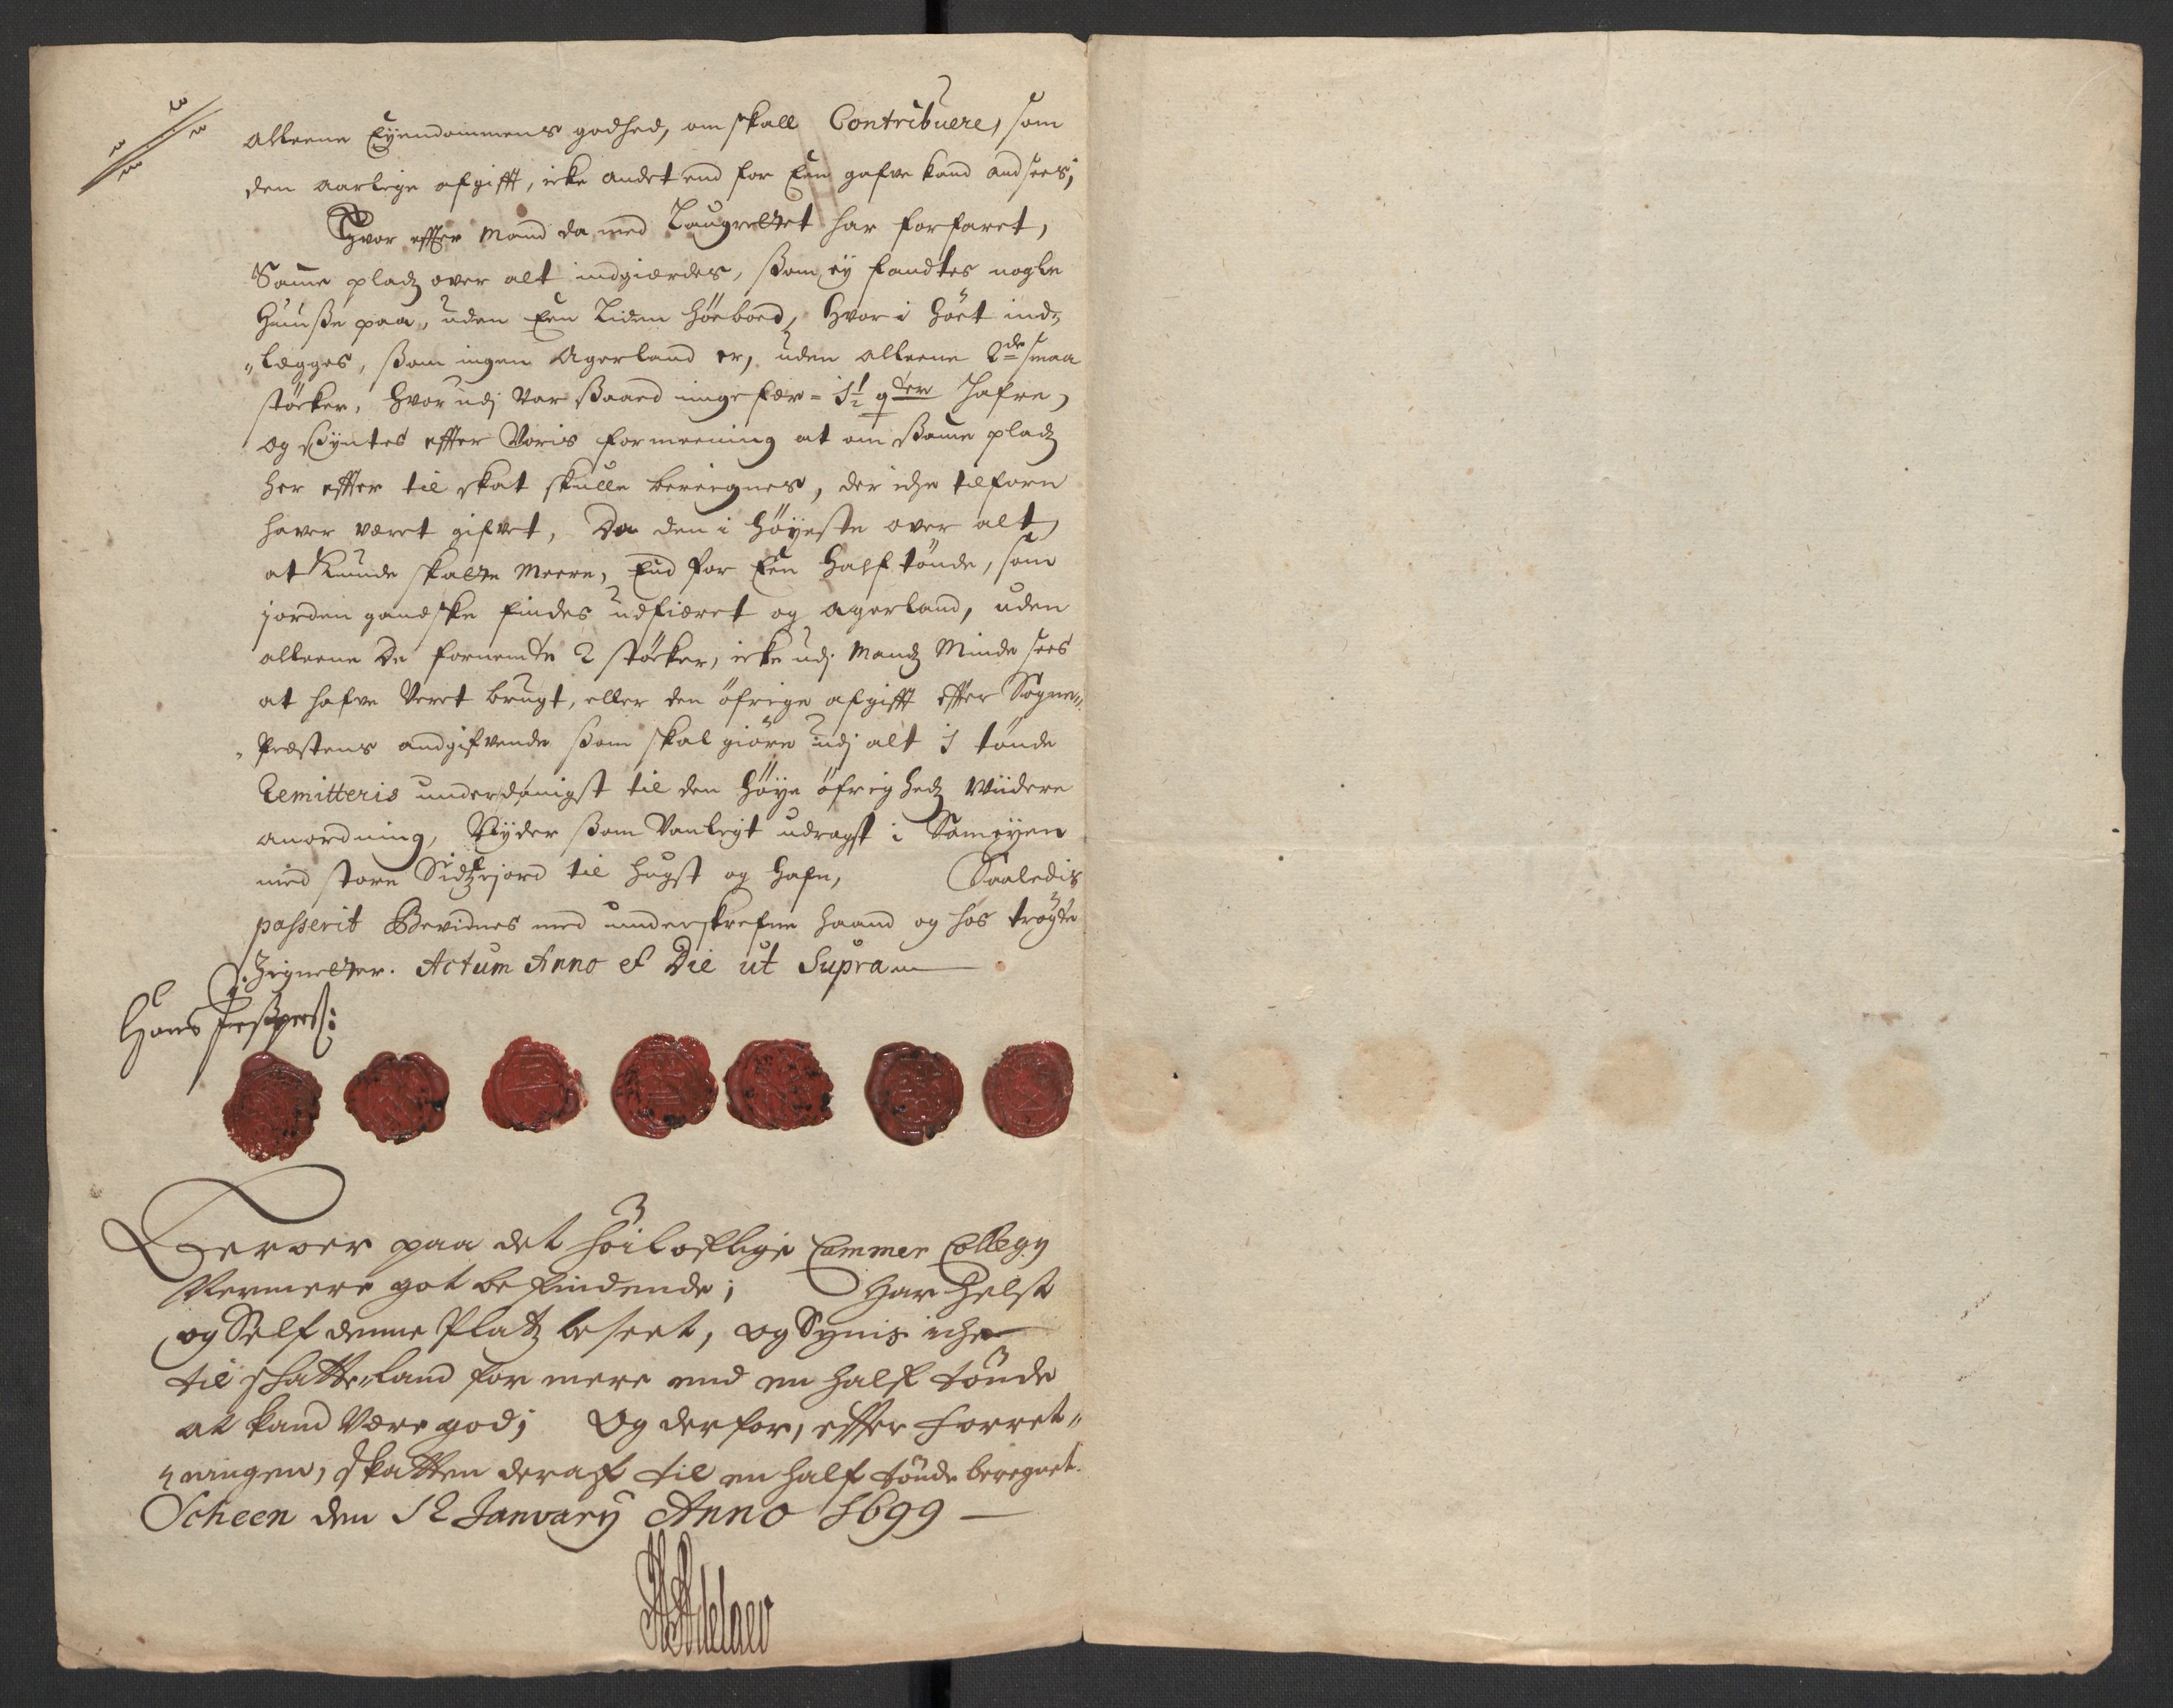 alleene Eyendommens godhed, om skall Contribuere, som
den aarlige afgifft, icke andet end for Een gafve kand ansees;
Hvor effter Mand da med Laugrettet har forfaret,
Samme pladz over alt indgierdes, ßom ey fandtes nogle
Huuße paa, uden Een liden höeboed, Hvor i Höet ind¬
„lægges, ßom ingen Agerland er, uden alleene 2de smaa
stöcker, Hvor udj var ßaaed ungefær - 1½ qter Hafre,
og ßyntes effter Voris formeening at om ßamme pladz
her effter til skat skulle bereignes, der iche tilforn
hafver veret gifvet, Da den i Höyeste over alt,
at kunde skatte meere, End for Een Half tönde, som
jorden gandske findes udfieret og agerland, uden
alleene De fornemte 2 stöcker, icke udj Mandz Minde sees
at hafve veret brugt, eller den öfrige afgifft effter Sogne„
„Prestens andgifvende ßom skal giöre udj alt 1 tönde
Remitteris underdanigst til den Höye öfrighedz Viidere
anordning, ßom Vanligt udragst i
med store til hugst og hafn, Saaledis
passerit Bevidnes med underskrefne haand og hos trögte
Zignetter. Actum Anno et Die ut Supra
Hans Jeßperß:
Herover paa det höiloflige Cammer Collegy
Nermere got befindende; Har Helst
og Self denne Platz beseet, og Synis iche
til schatte„land for mere end en half tönde
at kand Være god; Og derfor, effter forret„
ningen, skatten deraf til en half tönde beregnet.
Scheen den 12 January Anno 1699
HAdelaer